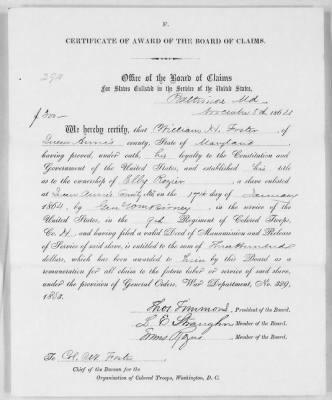 F.
CERTIFICATE OF AWARD OF THE BOARD OF CLAIMS.
294
Office of the Board of Claims
For Slaves Enlisted in the Service of the United States,
Baltimore Md
November 8th 1864
We hereby certify, that William H. Foster, of
Queen Anne's county, State of Maryland,
having proved, under oath, his loyalty to the Constitution and
Government of the United States, and established his title
as to the ownership of Elby Rozier, a slave enlisted
at Queen Anne's Md on the 17th day of January
1864, by Genl, in the service of the
United States, in the 9th Regiment of Colored Troops,
Co. H, and having filed a valid Deed of Manumission and Release
of Service of said slave, is entitled to the sum of Three Hundred
dollars, which has been awarded to him by this Board as a
remuneration for all claim to the future labor or service of said slave,
under the provision of General Orders, War Department, No. 329,
1863.
Thos Timmons, President of the Board.
L. E. Straughn, Member of the Board.
Member of the Board.
To Col. C.W. Foster
Chief of the Bureau for the
Organization of Colored Troops, Washington, D. C.